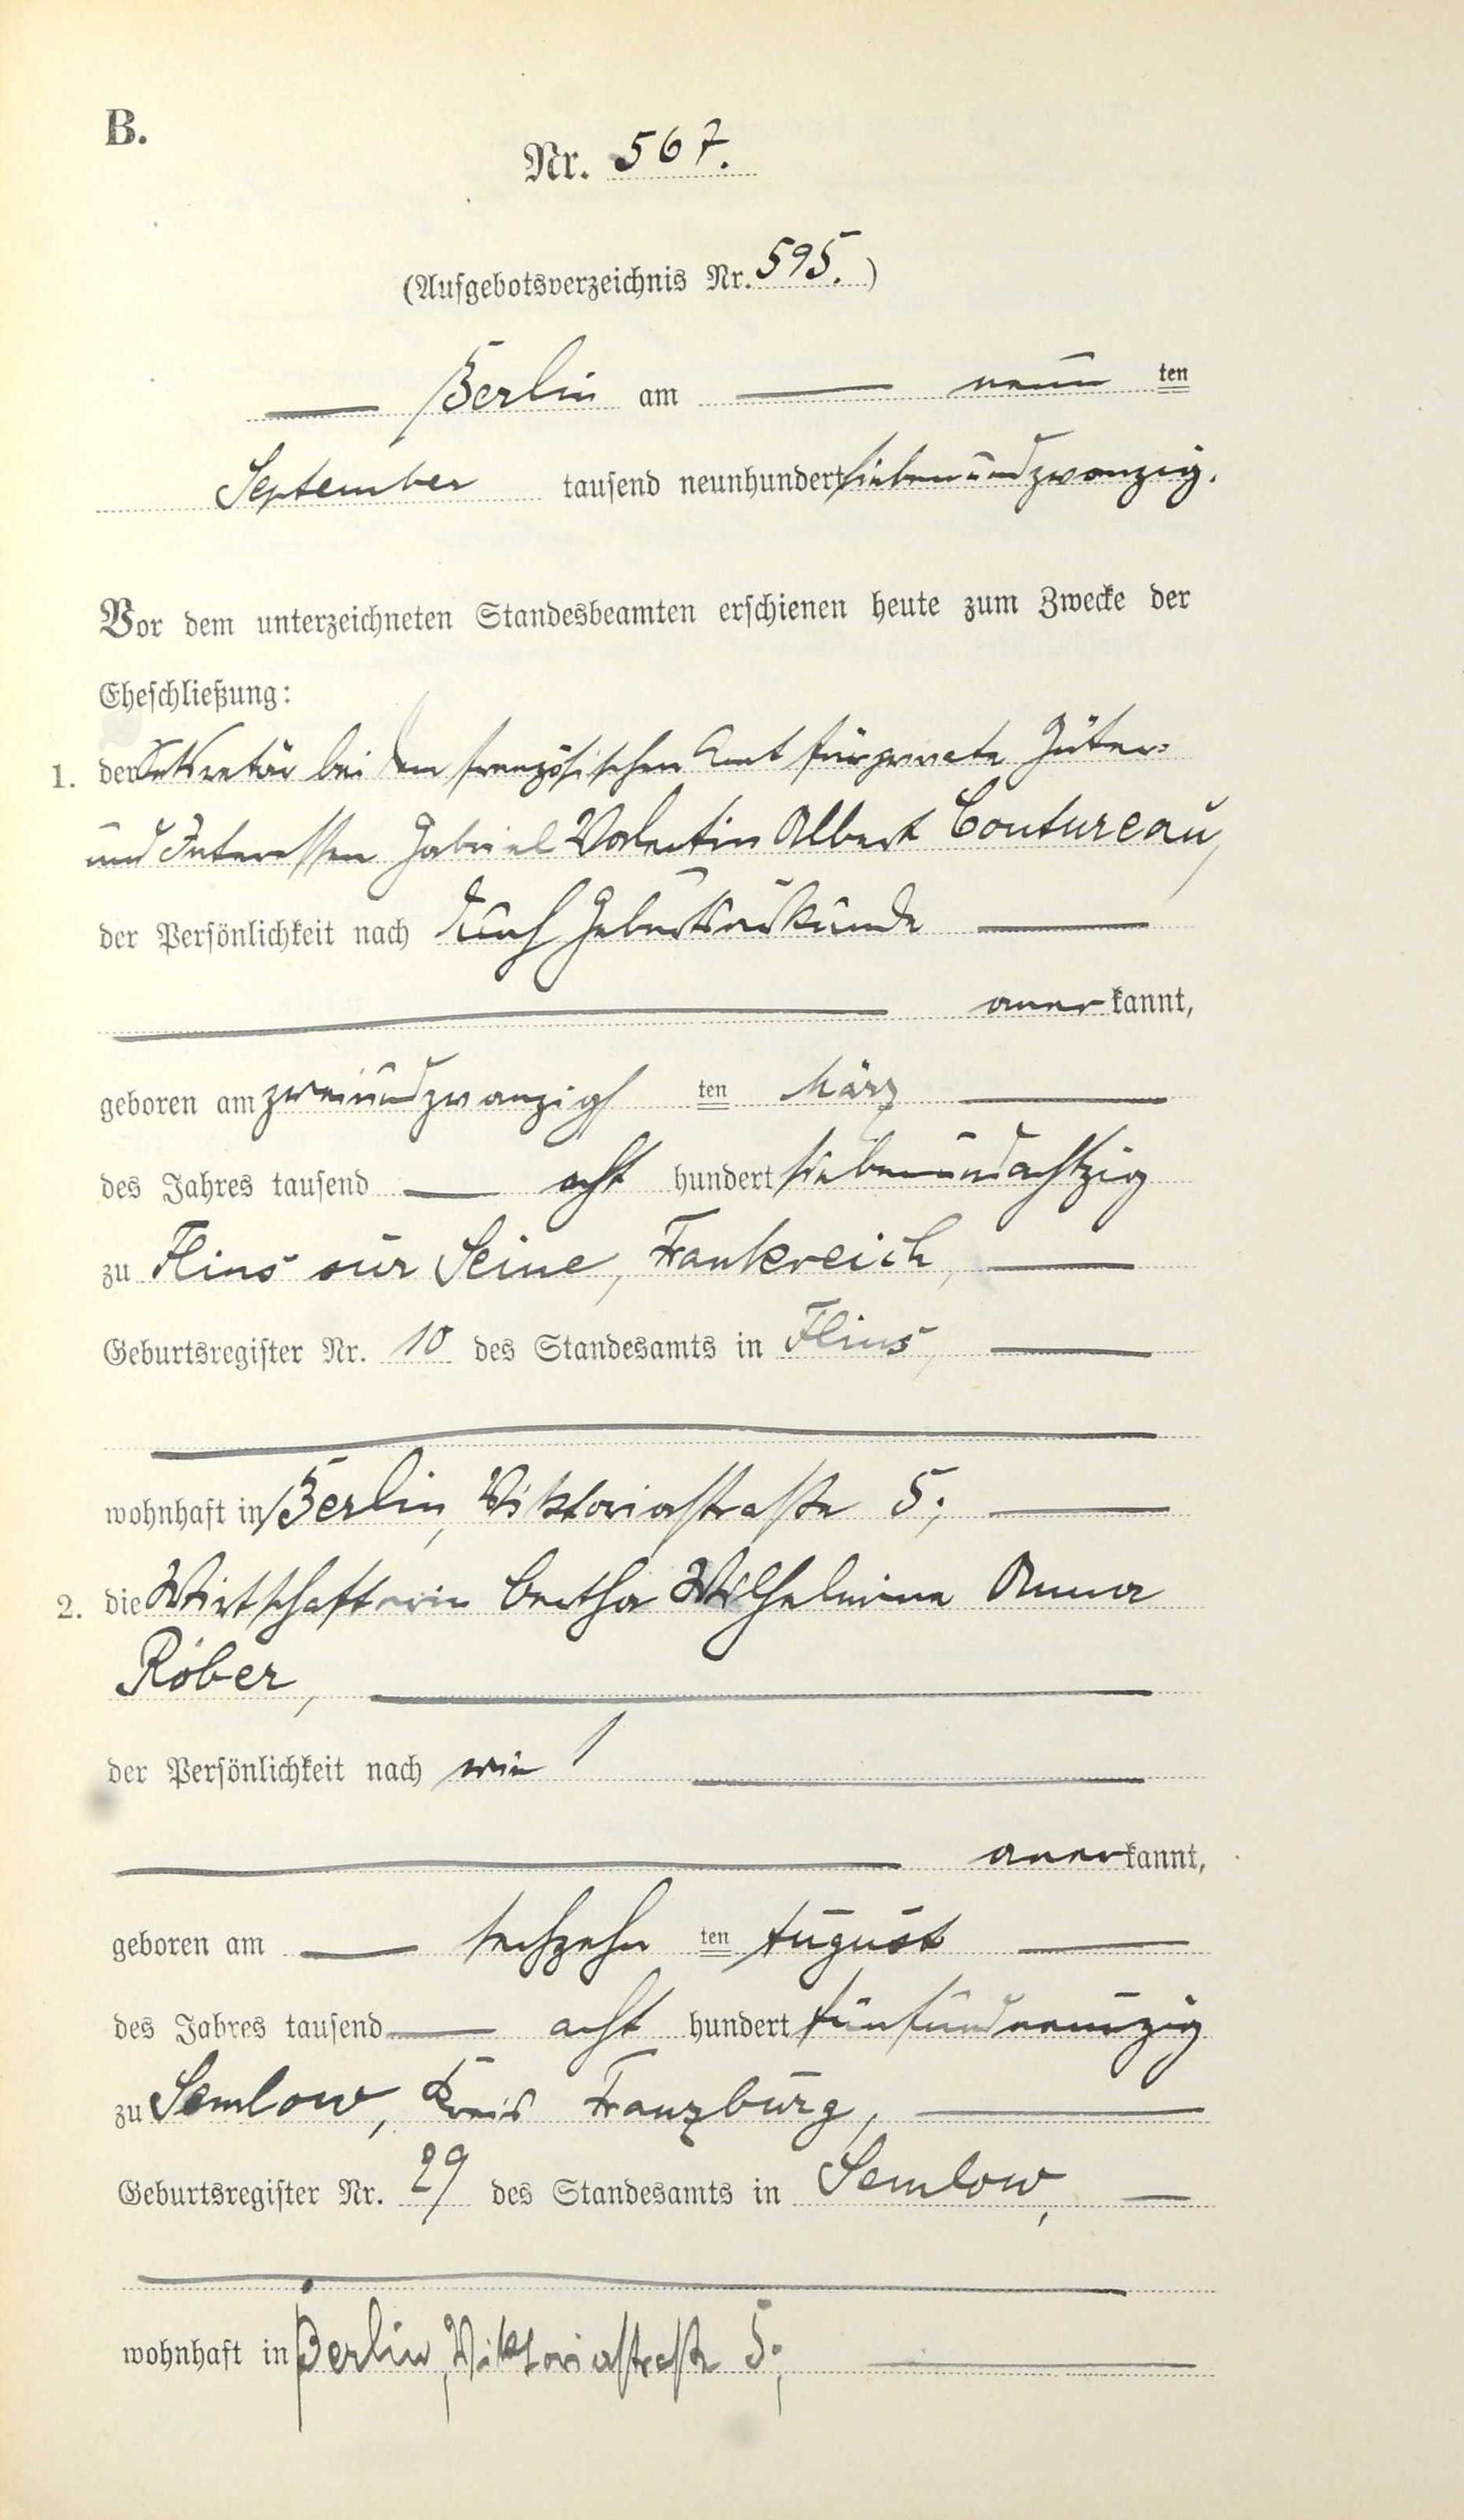 B.
Nr. 567.
(Aufgebotsverzeichnis Nr. 595.)
Berlin am neun ten
September tausend neunhundert siebenundzwanzig.
Vor dem unterzeichneten Standesbeamten erschienen heute zum Zwecke der
Eheschließung:
1. der Sekretär bei dem französischen Amt für private Güter-
und Interessen Gabriel Valentin Albert Coutureau,
der Persönlichkeit nach durch Geburtsurkunde
anerkannt,
geboren am zweiundzwanzigsten März
des Jahres tausend acht hundert siebenundachtzig
zu Flins sur Seine, Frankreich,
Geburtsregister Nr. 10 des Standesamts in Flins,
wohnhaft in Berlin, Viktoriastraße 5;
2. die Wirtschafterin Bertha Wilhelmine Anna
Röber,
der Persönlichkeit nach wie 1
anerkannt,
geboren am sechzehn ten August
des Jahres tausend acht hundert fünfundneunzig
zu Semlow, Kreis Franzburg,
Geburtsregister Nr. 29 des Standesamts in Semlow,
wohnhaft in Berlin, Viktoriastraße 5;